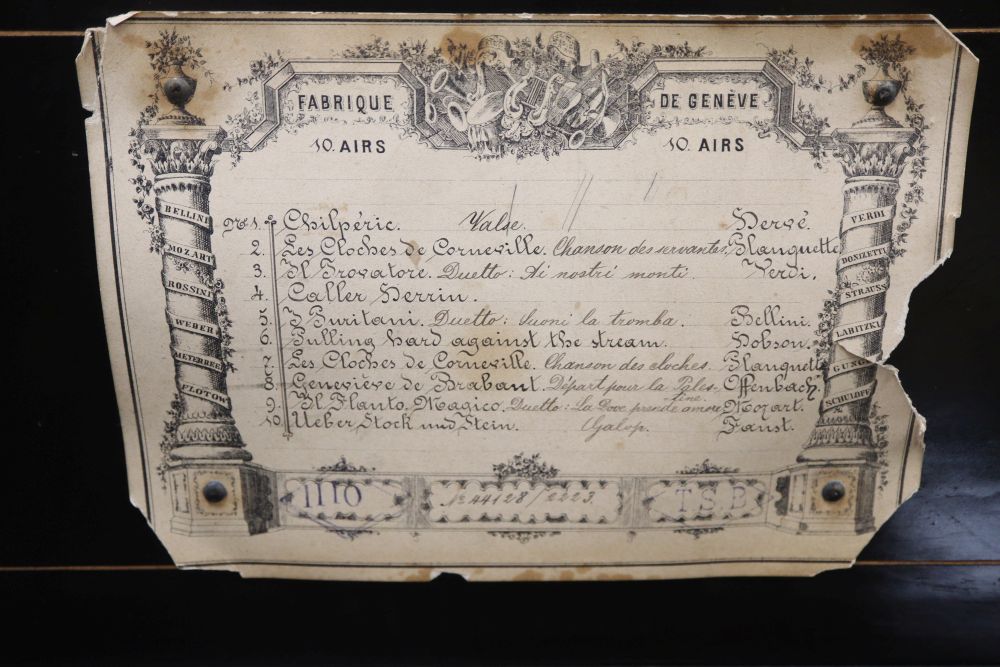 FABRIQUE DE GENÈVE
10. AIRS 10. AIRS
BELLINI
MOZART
ROSSINI
WEBER
MEYERBEER
FLOTOW
VERDI
DONIZETTI
STRAUSS
LABITZKI
GUNG
SCHULOFF
Nos 1. Chilpéric. Valse. Hervé.
2. Les Cloches de Corneville. Chanson des servantes. Planquette
3. Il Trovatore. Duetto: Ai nostri monti. Verdi.
4. Caller Herrin.
5. I Puritani. Duetto: Suoni la tromba. Bellini.
6. Pulling hard against the stream. Hobson.
7. Les Cloches de Corneville. Chanson des cloches. Planquette
8. Geneviève de Brabant. Départ pour la Palestine. Offenbach.
9. Il Flauto Magico. Duetto: La Dove prende amore Mozart.
10. Ueber Stock und Stein. Galop. Faust.
1110 No 44128/2223 T.S.B